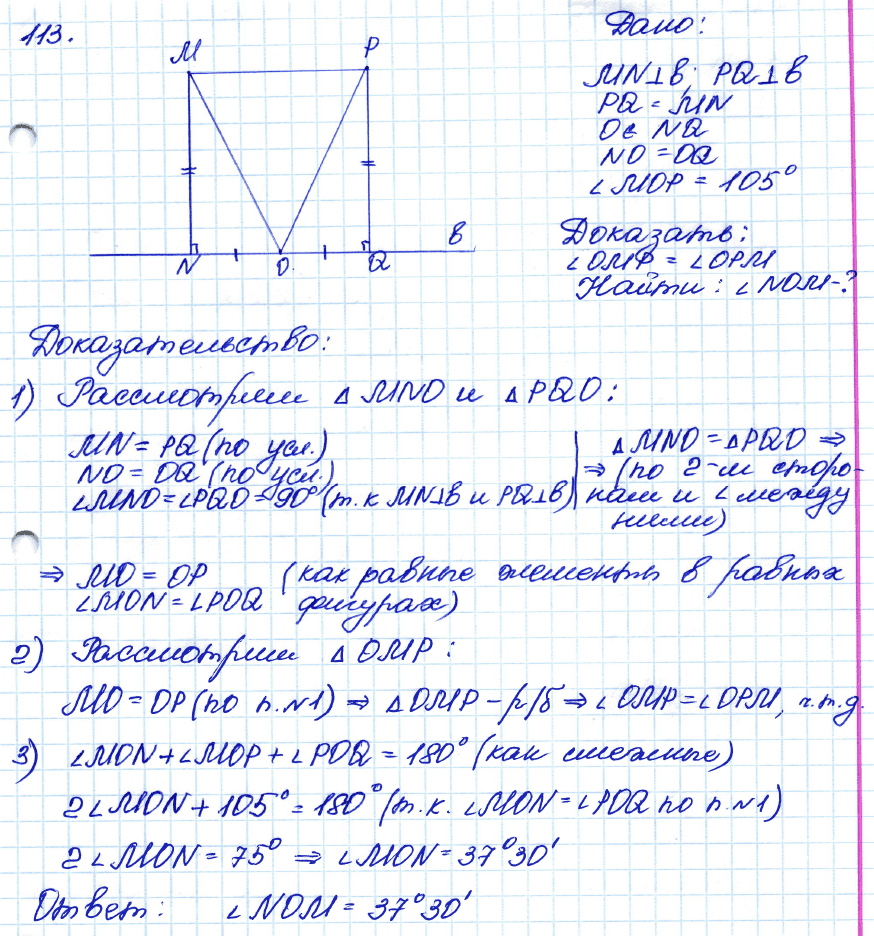 113.
M P
N O. Q в
Дано:
MN⊥в; PQ⊥в
PQ = MN
O∈ NQ
NO = OQ
∠MOP = 105°
Доказать:
∠OMP = ∠OPM
Найти: ∠NOM-?
Доказательство:
1) Рассмотрим △ MNO и △PQO:
MN = PQ (по усл.)
NO = OQ (по усл.)
∠MNO = ∠PQO = 90° (т.к MN⊥в и PQ⊥в)
△MNO = △PQO ⇒
⇒ (по 2-м сторо-
нам и ∠ между
ними)
⇒ MO = OP (как равные элементы в равных
∠MON = ∠POQ фигурах)
2) Рассмотрим △ OMP:
MO = OP (по п.N1) ⇒ △OMP - р/б ⇒ ∠OMP = ∠OPM, ч.т.д.
3) ∠MON + ∠MOP + ∠POQ = 180° (как смежные)
2∠MON + 105° = 180° (т.к. ∠MON = ∠POQ по п.N1)
2∠MON = 75° ⇒ ∠MON = 37°30'
Ответ: ∠NOM = 37°30'